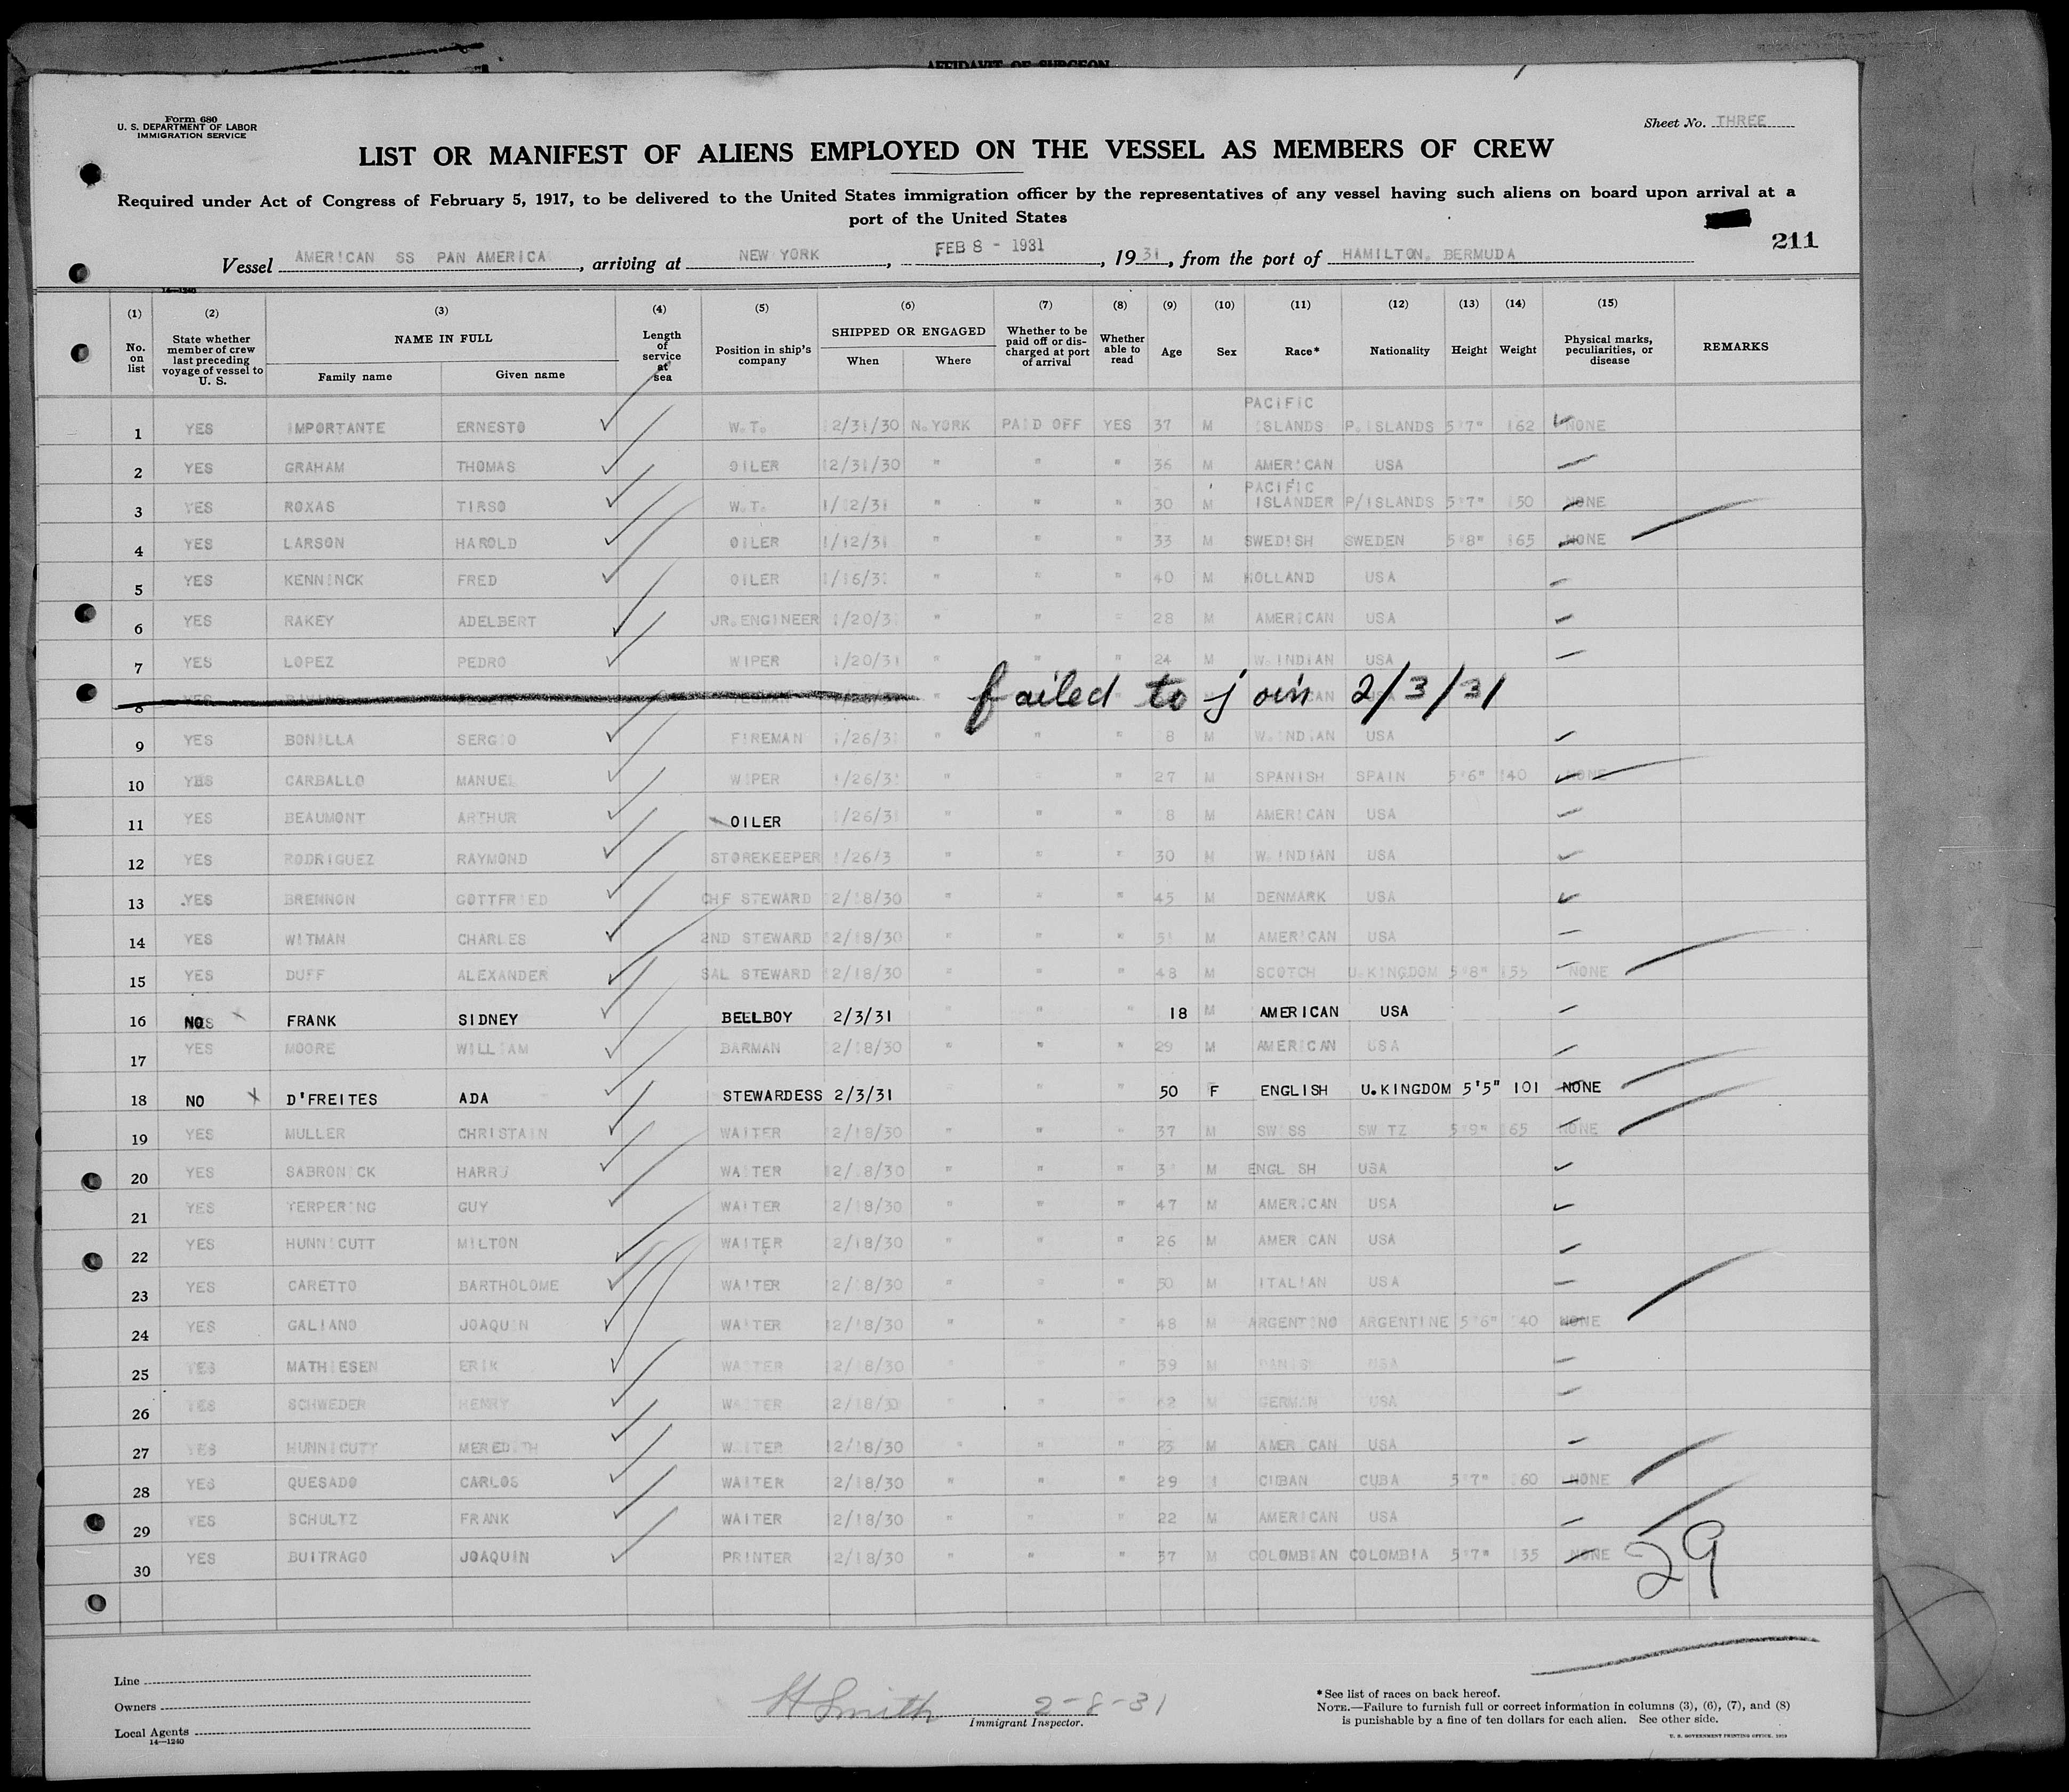 AFFIDAVIT OF SURGEON
Form 680
U. S. DEPARTMENT OF LABOR
IMMIGRATION SERVICE
Sheet No. THREE
LIST OR MANIFEST OF ALIENS EMPLOYED ON THE VESSEL AS MEMBERS OF CREW
Required under Act of Congress of February 5, 1917, to be delivered to the United States immigration officer by the representatives of any vessel having such aliens on board upon arrival at a
port of the United States
211
Vessel AMERICAN SS PAN AMERICA, arriving at NEW YORK, FEB 8 - 1931, 1931, from the port of HAMILTON, BERMUDA
14—1240
(1) (2) (3) (4) (5) (6) (7) (8) (9) (10) (11) (12) (13) (14) (15)
No. on list State whether member of crew last preceding voyage of vessel to U. S. NAME IN FULL Family name Given name Length of service at sea Position in ship's company SHIPPED OR ENGAGED When Where Whether to be paid off or discharged at port of arrival Whether able to read Age Sex Race* Nationality Height Weight Physical marks, peculiarities, or disease REMARKS
PACIFIC
1 YES IMPORTANTE ERNESTO W.T. 12/31/30 N.YORK PAID OFF YES 37 M ISLANDS P.ISLANDS 5'7" 162 NONE
2 YES GRAHAM THOMAS OILER 12/31/30 " " " 36 M AMERICAN USA
PACIFIC
3 YES ROXAS TIRSO W.T. 1/12/31 " " " 30 M ISLANDER P/ISLANDS 5'7" 150 NONE
4 YES LARSON HAROLD OILER 1/12/31 " " " 33 M SWEDISH SWEDEN 5'8" 165 NONE
5 YES KENNINCK FRED OILER 1/16/31 " " " 40 M HOLLAND USA
6 YES RAKEY ADELBERT JR.ENGINEER 1/20/31 " " " 28 M AMERICAN USA
7 YES LOPEZ PEDRO WIPER 1/20/31 " " " 24 M W.INDIAN USA
8 YES failed to join 2/3/31
9 YES BONILLA SERGIO FIREMAN 1/26/31 " " " 8 M W.INDIAN USA
10 YES CARBALLO MANUEL WIPER 1/26/31 " " " 27 M SPANISH SPAIN 5'6" 140 NONE
11 YES BEAUMONT ARTHUR OILER 1/26/31 " " " 8 M AMERICAN USA
12 YES RODRIGUEZ RAYMOND STOREKEEPER 1/26/3 " " " 30 M W.INDIAN USA
13 YES BRENNON GOTTFRIED CHF STEWARD 12/18/30 " " " 45 M DENMARK USA
14 YES WITMAN CHARLES 2ND STEWARD 12/18/30 " " " 51 M AMERICAN USA
15 YES DUFF ALEXANDER SAL STEWARD 12/18/30 " " " 48 M SCOTCH U.KINGDOM 5'8" 155 NONE
16 NO FRANK SIDNEY BELLBOY 2/3/31 " " " 18 M AMERICAN USA
17 YES MOORE WILLIAM BARMAN 12/18/30 " " " 29 M AMERICAN USA
18 NO D'FREITES ADA STEWARDESS 2/3/31 " " " 50 F ENGLISH U.KINGDOM 5'5" 101 NONE
19 YES MULLER CHRISTAIN WAITER 12/18/30 " " " 37 M SWISS SWITZ 5'9" 165 NONE
20 YES SABRONICK HARRJ WAITER 12/18/30 " " " 3 M ENGLISH USA
21 YES TERPERING GUY WAITER 12/18/30 " " " 47 M AMERICAN USA
22 YES HUNNICUTT MILTON WAITER 12/18/30 " " " 26 M AMERICAN USA
23 YES CARETTO BARTHOLOME WAITER 12/18/30 " " " 50 M ITALIAN USA
24 YES GALIANO JOAQUIN WAITER 12/18/30 " " " 48 M ARGENTINO ARGENTINE 5'6" 140 NONE
25 YES MATHIESEN ERIK WAITER 12/18/30 " " " 39 M DANISH USA
26 YES SCHWEDER HENRY WAITER 12/18/30 " " " M GERMAN USA
27 YES HUNNICUTT MEREDITH WAITER 12/18/30 " " " 23 M AMERICAN USA
28 YES QUESADO CARLOS WAITER 12/18/30 " " " 29 CUBAN CUBA 5'7" 160 NONE
29 YES SCHULTZ FRANK WAITER 12/18/30 " " " 22 M AMERICAN USA
30 YES BUITRAGO JOAQUIN PRINTER 12/18/30 " " " 37 M COLOMBIAN COLOMBIA 5'7" 135 NONE
29
Line
Owners
Local Agents
14—1240
H Smith 2-8-31
Immigrant Inspector.
*See list of races on back hereof.
NOTE.—Failure to furnish full or correct information in columns (3), (6), (7), and (8)
is punishable by a fine of ten dollars for each alien. See other side.
U. S. GOVERNMENT PRINTING OFFICE